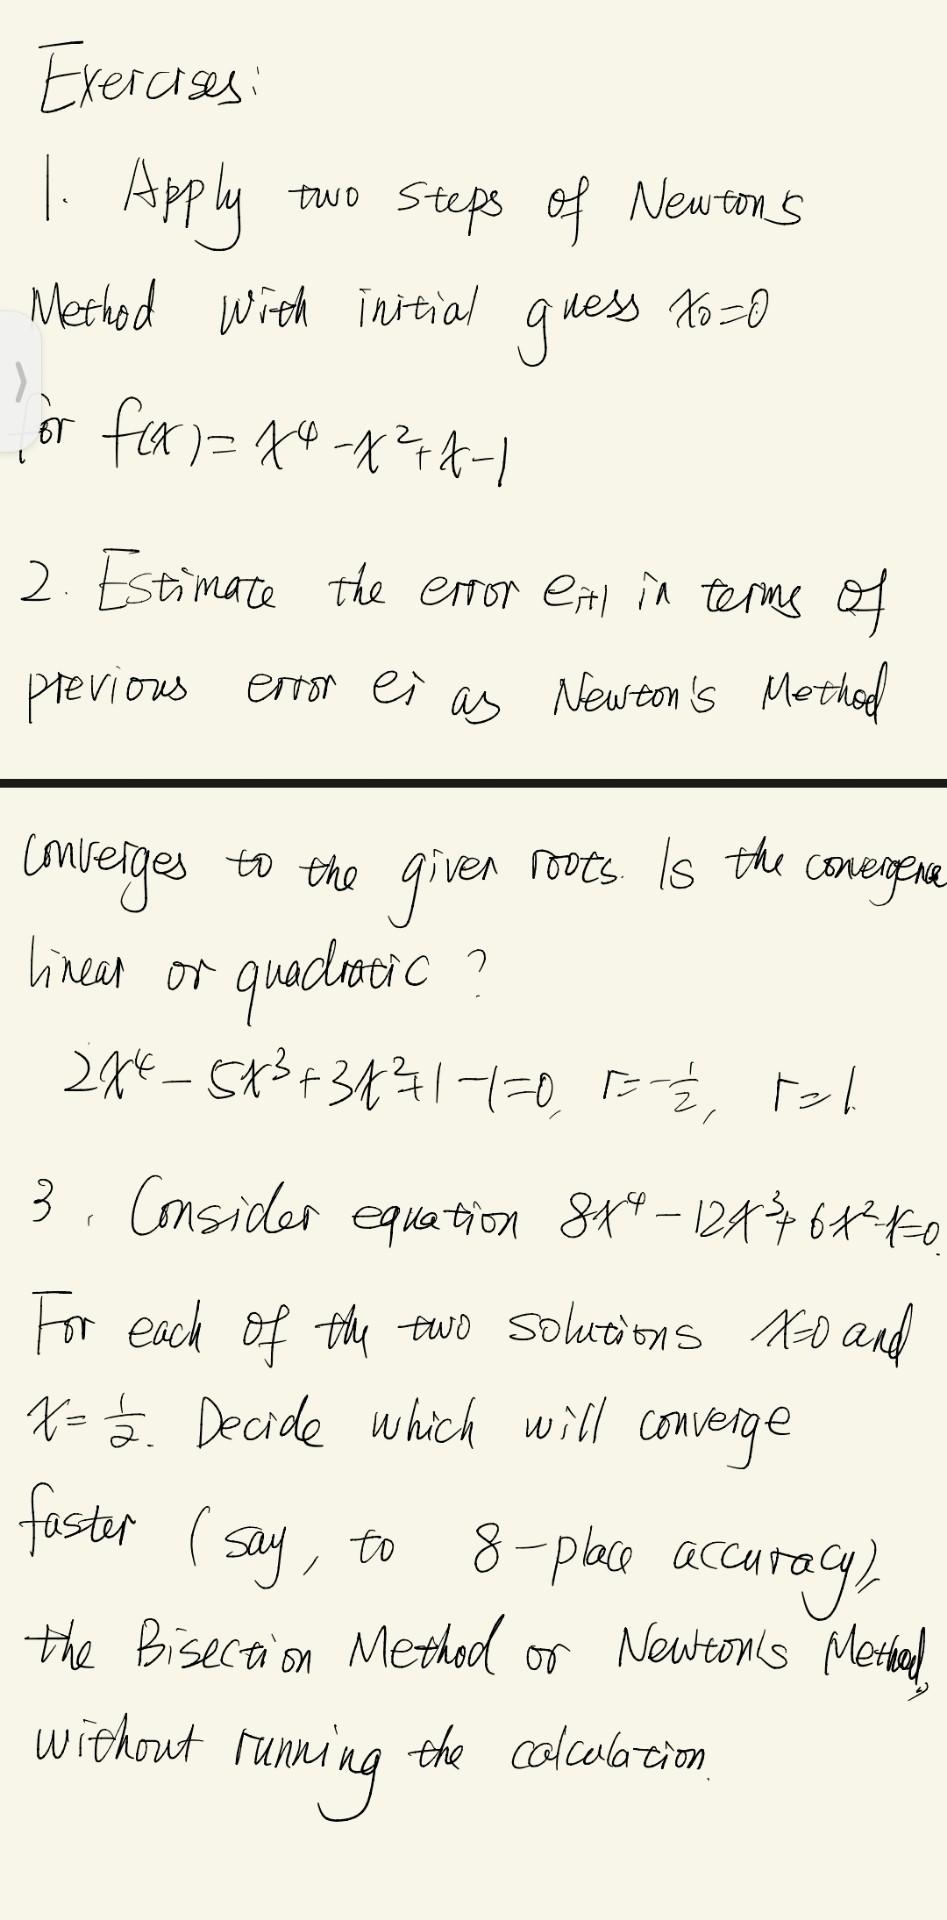 Exercises:
1. Apply two steps of Newton's
Method With initial guess x₀=0
for f(x)= x⁴-x²+x-1
2. Estimate the error eᵢ₊₁ in terms of
previous error eᵢ as Newton's Method
converges to the given roots. Is the convergence
linear or quadratic?
2x⁴-5x³+3x²+1-1=0, r=-1/2, r=1.
3. Consider equation 8x⁴-12x³+6x²-x=0.
For each of the two solutions x=0 and
x=1/2. Decide which will converge
faster (say, to 8-place accuracy),
the Bisection Method or Newton's Method,
without running the calculation.